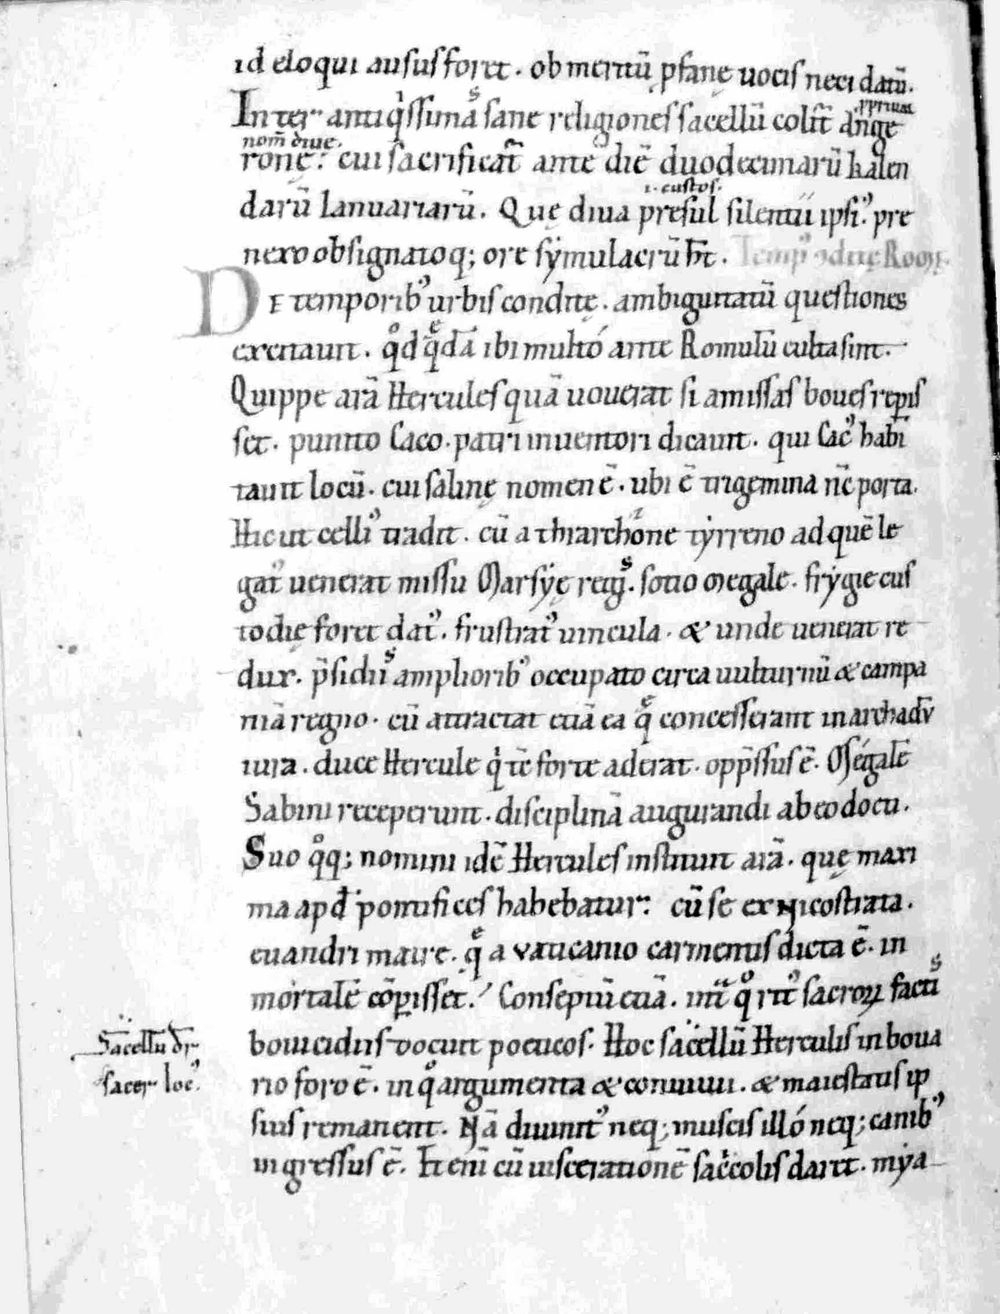 id eloqui ausus foret. ob meritū ꝓfanę uocis neci datū.
Inter antiqͥssimas sane religiones sacellū colit᷑ ange
nom̄ diuę.
ronę: cui sacrificat᷑ ante diē duodecimarū kalen
.i. custos.
darū Ianuariarū. Quę diua pręsul silentii ipsiꝰ pre
nexo obsignatoq; ore sẏmulacrū hꝫ. Temp
De temporibꝰ urbis conditę. ambiguitatū questiones
excitauit. qͦd quędā ibi multó ante Romulū culta sint.
Quippe arā Hercules quā uouerat si amissas boues repꝑis
set. punito Caco. patri inuentori dicauit. qui Cacꝰ habi
tauit locū. cui salinę nomen ē. ubi ē trigemina nc̄ porta.
Hic ut celliꝰ tradit. cū a tharchóne tẏrreno ad quē le
gatꝰ uenerat missu Marsẏę regis. socio megale. frẏgie cus
todię foret datꝰ. frustratꝰ uincula. & unde uenerat re
dux. p̄sidiis amplioribꝰ occupato circa uulturnū & campa
niā regno. cū attractat etiā ea quę concesserant in archadū
iura. duce Hercule qͥ tc̄ forte aderat. opp̄ssus ē. Mégalē
Sabini receperunt. disciplinā augurandi ab eo docti.
Suo qͦq; nomini idē Hercules instituit arā. quę maxi
ma apd̄ pontifices habebatur: cū se ex Nicostrata.
euandri matre. quę a vaticinio carmentis dicta ē. in
mortalē cōꝑisset. Conseptū etiā. int᷑ qͦ ritꝰ sacroꝝ factis
bouicidiis docuit poticios. Hoc sacellū Herculis in boua
Sacellū dr̄
rio foro ē. in qͦ argumenta & conuiuii. & maiestatis ip
sacer locꝰ.
sius remanent. Nā diuinitꝰ neq; muscis illó neq; canibꝰ
ingressus ē. Eteni cū uiscerationē sacͥcolis daret. mẏa